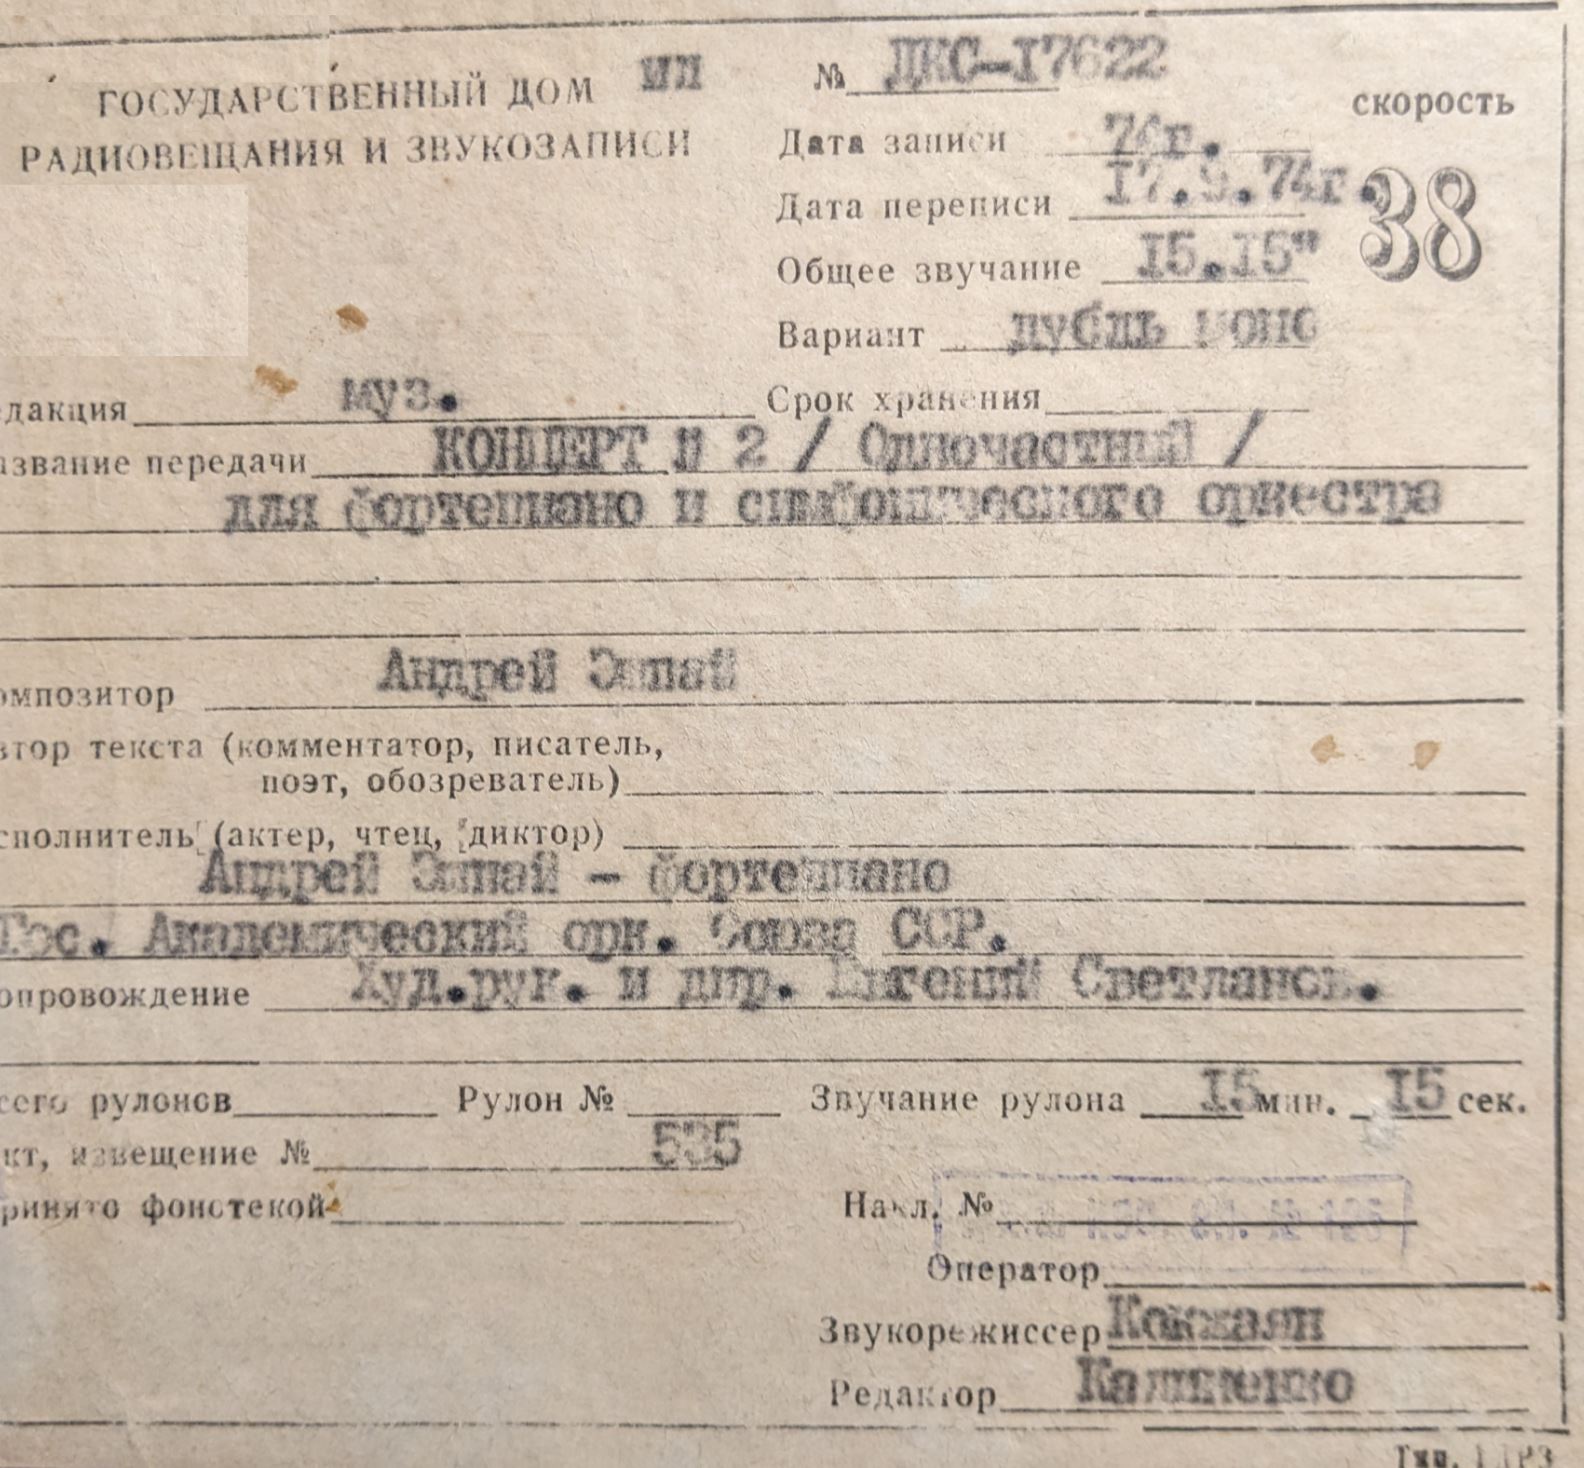 ГОСУДАРСТВЕННЫЙ ДОМ
РАДИОВЕЩАНИЯ И ЗВУКОЗАПИСИ
№ ДКС-I7622
скорость
38
Дата записи 74г.
Дата переписи I7.9.74г.
Общее звучание I5.I5"
Вариант дубль моно
едакция муз. Срок хранения
азвание передачи КОНЦЕРТ № 2 / Одночастный /
для фортепиано и симфонического оркестра
омпозитор Андрей Эшпай
втор текста (комментатор, писатель,
поэт, обозреватель)
сполнитель (актер, чтец, диктор)
Андрей Эшпай – фортепиано
Гос. Академический орк. Союза ССР.
опровождение Худ.рук. и дир. Евгений Светланов.
сего рулонов Рулон № Звучание рулона I5 мин. I5 сек.
кт, извещение № 535
ринято фонотекой Накл. №
Оператор
Звукорежиссер
Редактор
Тип. ГДРЗ